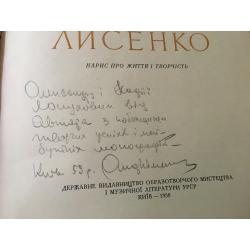 ЛИСЕНКО
НАРИС ПРО ЖИТТЯ І ТВОРЧІСТЬ
Олександру і Надії
від
Автора з побажанням
творчих успіхів і май-
бутніх монографій —
Київ 59 р.
ДЕРЖАВНЕ ВИДАВНИЦТВО ОБРАЗОТВОРЧОГО МИСТЕЦТВА
І МУЗИЧНОЇ ЛІТЕРАТУРИ УРСР
КИЇВ — 1958